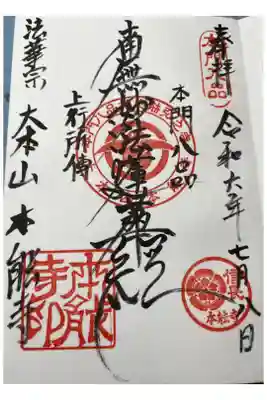 奉拝
令和六年七月八日
本門八品
南無妙法蓮華経
上行所傳
法華宗
大本山 本能寺
信長
本能寺
本能寺印